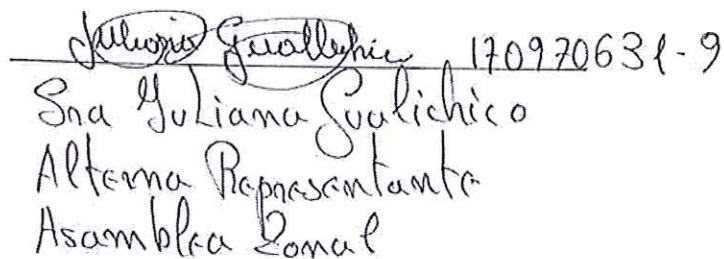 Juliana Guallichico 170970631-9
Sra Yuliana Gualichico
Alterna Representante
Asamblea Zonal